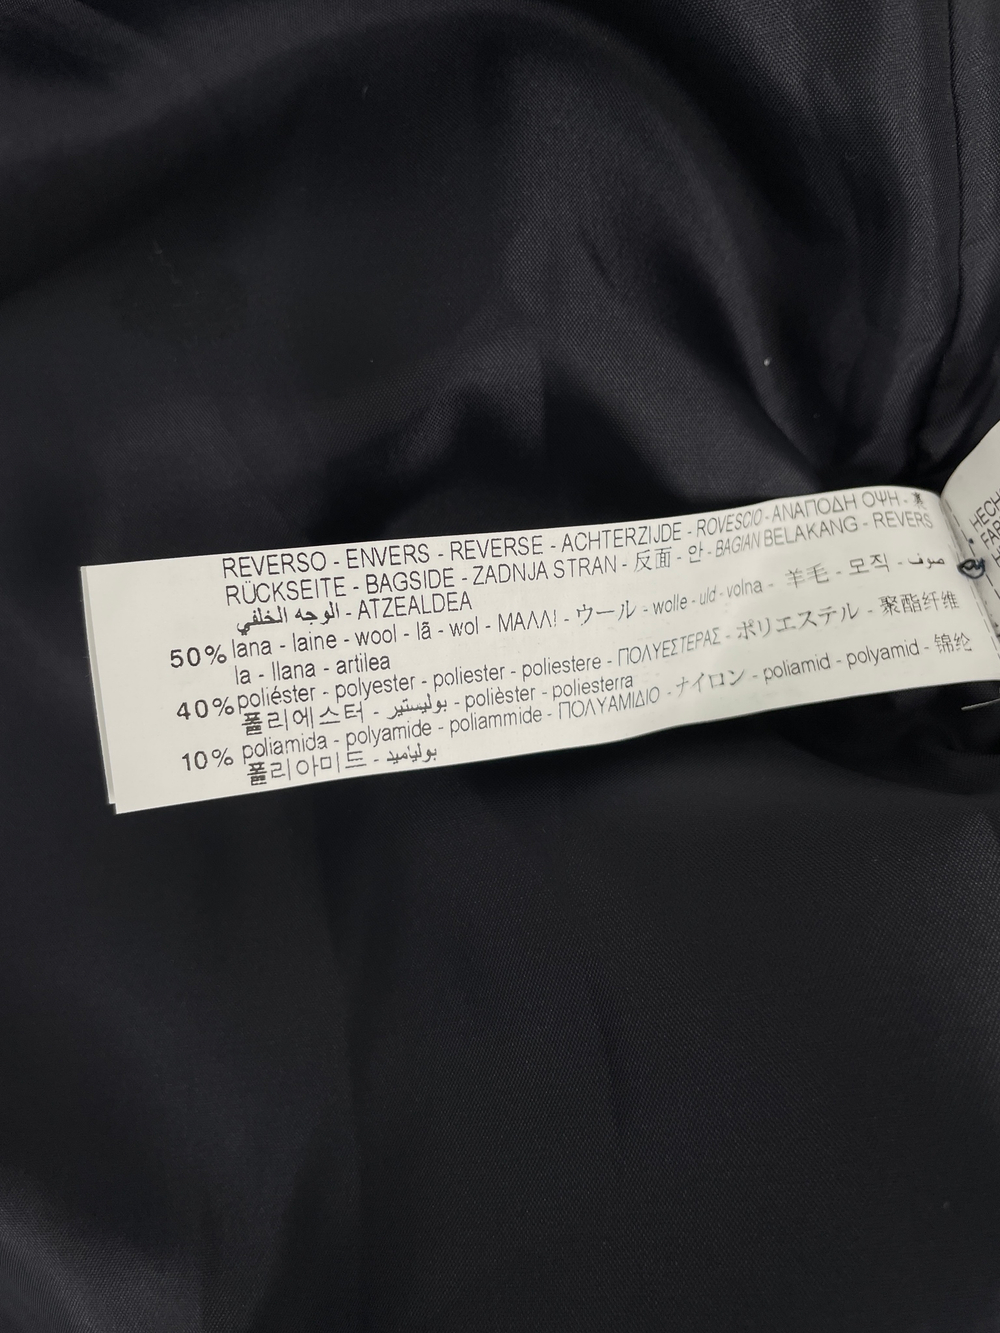 REVERSO - ENVERS - REVERSE - ACHTERZIJDE - ROVESCIO - ΑΝΑΠΟΔΗ ΟΨΗ - 裏
RÜCKSEITE - BAGSIDE - ZADNJA STRAN - 反面 - 안 - BAGIAN BELAKANG - REVERS
الوجه الخلفي - ATZEALDEA
50% lana - laine - wool - lã - wol - ΜΑΛΛ! - ウール - wolle - uld - volna - 羊毛 - 모직 - صوف -
la - llana - artilea
40% poliéster - polyester - poliester - poliestere - ΠΟΛΥΕΣΤΕΡΑΣ - ポリエステル - 聚酯纤维
폴리에스터 - بوليستير - polièster - poliesterra
10% poliamida - polyamide - poliammide - ΠΟΛΥΑΜΙΔΙΟ - ナイロン - poliamid - polyamid - 锦纶
폴리아미드 - بولياميد
HECH